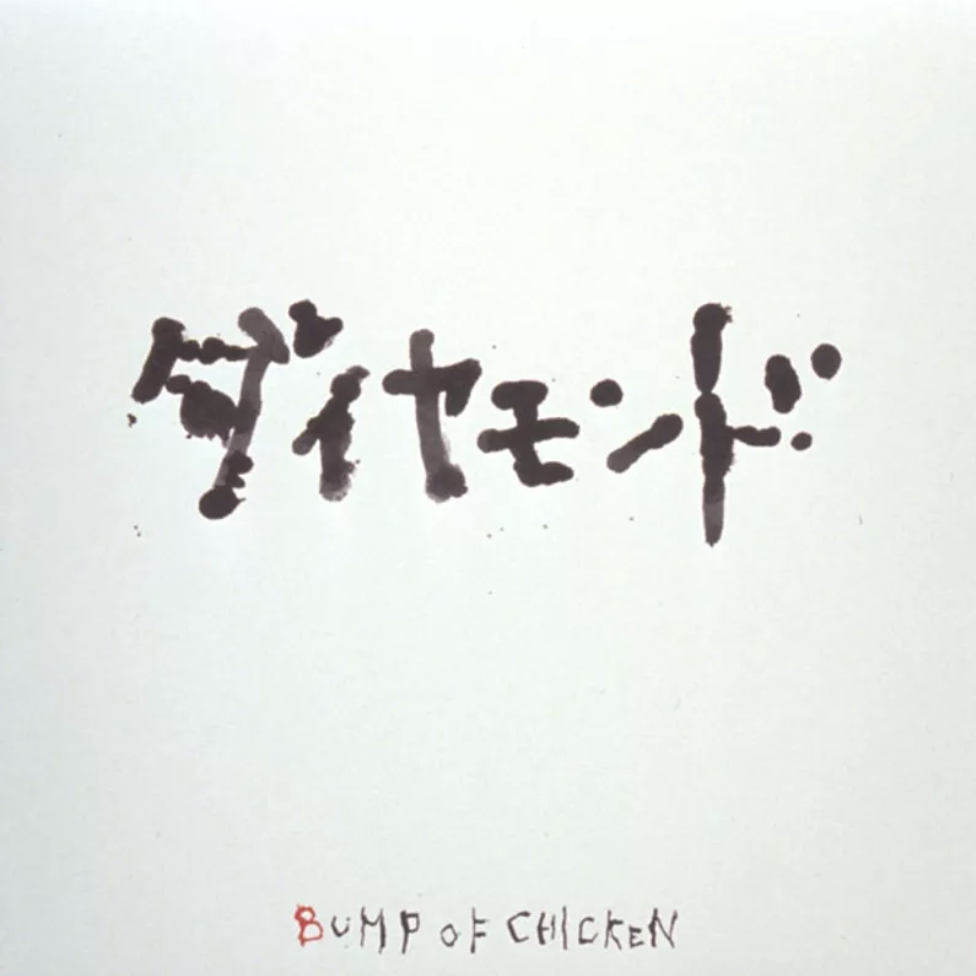 ダイヤモンド
BUMP OF CHICKEN